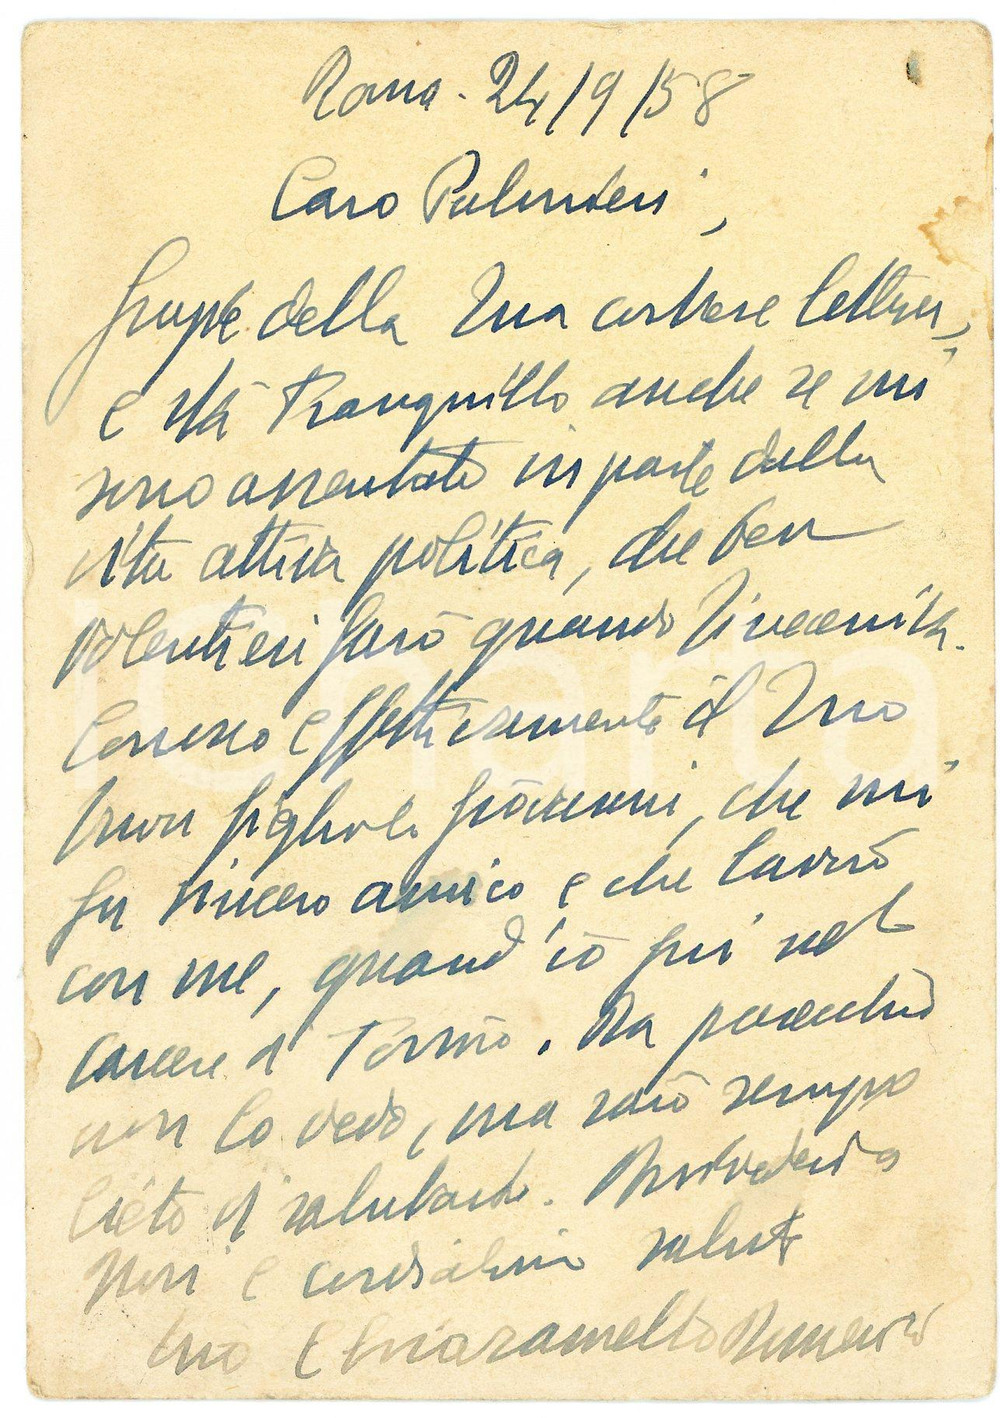 Roma - 24/9/58
Caro Palmieri,
Grazie della Sua cortese lettera,
e stà tranquillo anche se mi
sono assentato in parte dalla
vita attiva politica, che ben
volentieri farò quando
Conosco effettivamente il Suo
buon figliolo Giovanni, che mi
fu sincero amico e che lavorò
con me, quand'io fui nel
carcere di Torino. Da parecchio
non lo vedo, ma sarò sempre
lieto di salutarlo.
e cordialmente saluti
Suo Chiaramello Domenico